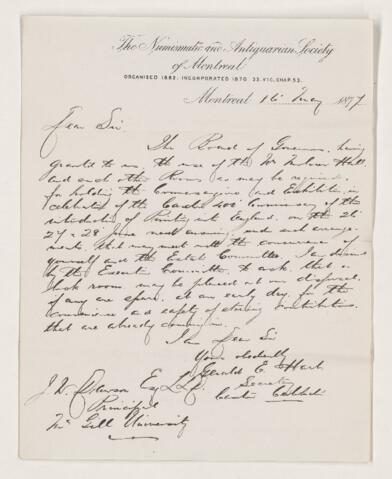 The Numismatic and Antiquarian Society
of Montreal
ORGANISED 1862. INCORPORATED 1870. 33. VIC. CHAP. 53.
Montreal 16 May 1877
Dear Sir
The Board of Governors, having
granted to us, the use of the Wm Molson Hall
and such other Rooms as may be required,
for holding the Conversazione and Exhibition in
celebration of the Caxton 400th Anniversary of the
introduction of Printing into England, on the 26
27 & 28 June next ensuing, under such arrange-
ments, that may meet with the concurrence of
yourself and the Estate Committee, I am desired
by the Executive Committee to ask, that a
lock room, may be placed at our disposal,
if any are spare, at an early day, for the
convenience and safety of storing contributions
that are already coming in.
I am Dear Sir
Yours obediently
Gerald E. Hart
Secretary
Caxton Celebration
J. W. Dawson Esq LL.D.
Principal
McGill University